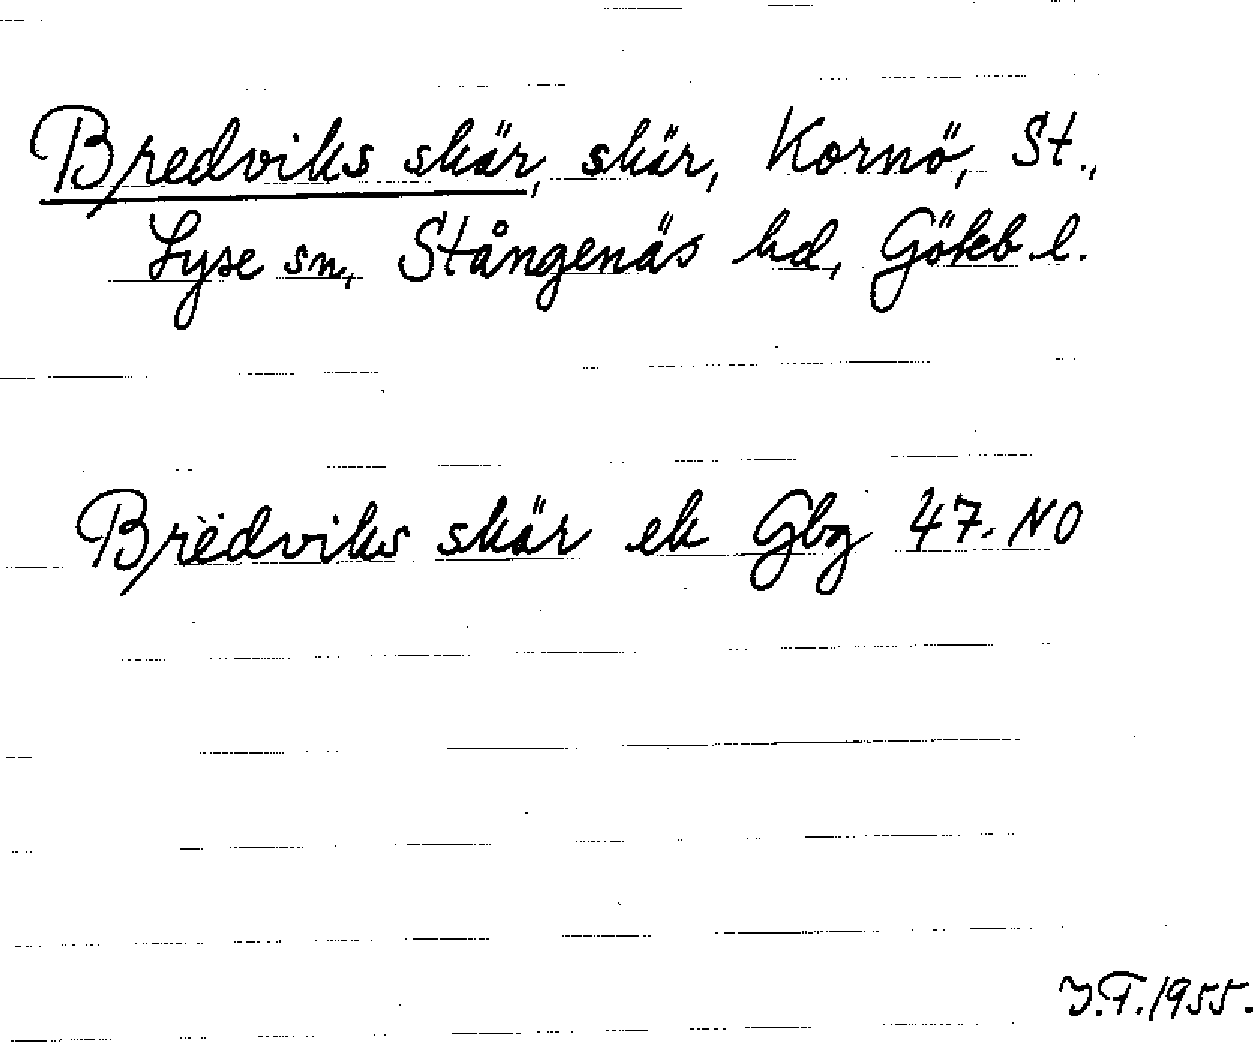 Bredviks skär, skär, Kornö, St.,
Lyse sn, Stångenäs hd, Göteb. l.
Bredviks skär ek Gbg 47. NO
I.T. 1955.